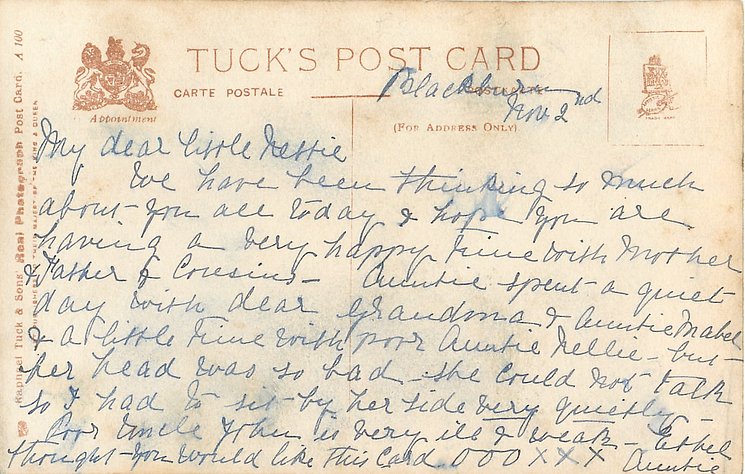 TUCK'S POST CARD
CARTE POSTALE
Appointment
(FOR ADDRESS ONLY)
Raphael Tuck & Sons' Real Photograph Post Card. A 100
TRADE MARK
Blackburn
Nov 2nd
My dear little Nessie
We have been thinking so much
about you all today & hope you are
having a very happy time with Mother
& Father & Cousins - Auntie spent a quiet
day with dear Grandma & Auntie Mabel
& a little time with poor Auntie Nellie - but
her head was so bad - she could not talk
so I had to sit by her side very quietly -
Poor Uncle John is very ill & weak - Ethel
thought you would like this Card. OOO XXX Auntie